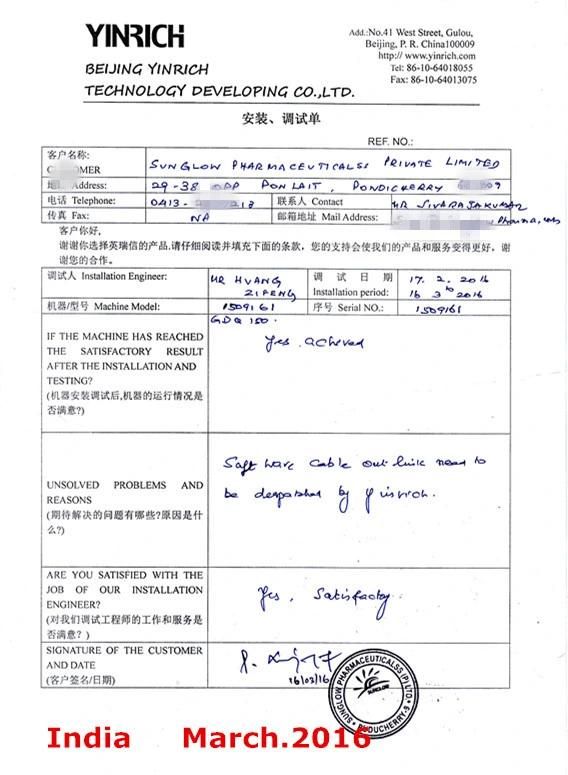 YINRICH
BEIJING YINRICH
TECHNOLOGY DEVELOPING CO.,LTD.
Add.:No.41 West Street, Gulou,
Beijing, P. R. China100009
http:// www.yinrich.com
Tel: 86-10-64018055
Fax: 86-10-64013075
安装、调试单
REF. NO.:
客户名称: SUNGLOW PHARMACEUTICALSS PRIVATE LIMITED
Address: 29-38 OPP PONLAIT, PONDICHERRY
电话 Telephone: 0413- 联系人 Contact MR SIVARAJAKUMAR
传真 Fax: NA 邮箱地址 Mail Address:
客户你好,
谢谢你选择英瑞信的产品,请仔细阅读并填充下面的条款，您的支持会使我们的产品和服务变得更好，谢
谢您的合作。
调试人 Installation Engineer: MR HUANG ZIFENG
调试日期 Installation period: 17. 2. 2016
16 3 2016
机器/型号 Machine Model: 1509161 序号 Serial NO.: 1509161
GDQ 150.
IF THE MACHINE HAS REACHED
THE SATISFACTORY RESULT
AFTER THE INSTALLATION AND
TESTING?
(机器安装调试后,机器的运行情况是
否满意?)
Yes. acheved
UNSOLVED PROBLEMS AND
REASONS
(期待解决的问题有哪些?原因是什
么?)
Soft ware cable out link need to
be despatched by Yinrich.
ARE YOU SATISFIED WITH THE
JOB OF OUR INSTALLATION
ENGINEER?
(对我们调试工程师的工作和服务是
否满意？)
Yes, Satisfactory
SIGNATURE OF THE CUSTOMER
AND DATE
(客户签名/日期)
16/03/16
SUNGLOW PHARMACEUTICALSS (P) LTD.
SUNGLOW
PUDUCHERRY-9
India March.2016